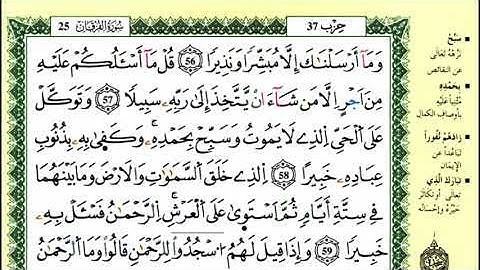 حِزْب 37
سُورَةُ الْفُرْقَان 25
وَمَآ أَرْسَلْنَٰكَ إِلَّا مُبَشِّرًا وَنَذِيرًا 56 قُلْ مَآ أَسْـَٔلُكُمْ عَلَيْهِ
مِنَ اَجْرٍ اِلَّا مَن شَآءَ انْ يَّتَّخِذَ إِلَىٰ رَبِّهِۦ سَبِيلًا 57 وَتَوَكَّلْ
عَلَى ٱلْحَيِّ ٱلذِے لَا يَمُوتُ وَسَبِّحْ بِحَمْدِهِۦ وَكَفَىٰ بِهِۦ بِذُنُوبِ
عِبَادِهِۦ خَبِيرًا 58 ٱلذِے خَلَقَ ٱلسَّمَٰوَٰتِ وَالَارْضَ وَمَا بَيْنَهُمَا
فِے سِتَّةِ أَيَّامٍ ثُمَّ ٱسْتَوَىٰ عَلَى ٱلْعَرْشِ ٱلرَّحْمَٰنُ فَسْـَٔلْ بِهِۦ
خَبِيرًا 59 وَإِذَا قِيلَ لَهُمُ ٱسْجُدُوا لِلرَّحْمَٰنِ قَالُوا وَمَا ٱلرَّحْمَٰنُ
سَبِّحْ
نَزِّهْهُ تَعَالَى
عن النقائص
بِحَمْدِهِ
مُثْنِياً عليه
بأوصاف الكمال
زَادَهُمْ نُفُوراً
تَبَاعُداً عن
الإيمان
تَبَارَكَ الَّذِي
تعالى أو تكاثر
خَيْرُه وإحسانُه